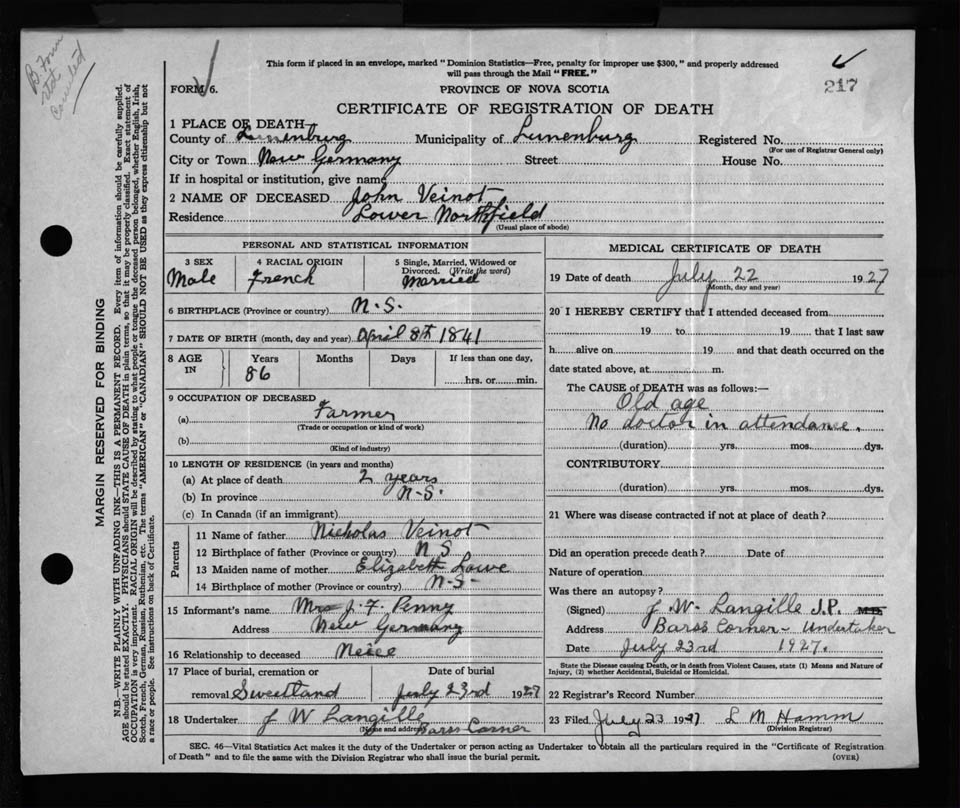 This form if placed in an envelope, marked "Dominion Statistics—Free, penalty for improper use $300," and properly addressed
will pass through the Mail "FREE."
217
FORM 6.
PROVINCE OF NOVA SCOTIA
CERTIFICATE OF REGISTRATION OF DEATH
1 PLACE OF DEATH—
County of Lunenburg Municipality of Lunenburg Registered No.
(For use of Registrar General only)
City or Town New Germany Street House No.
If in hospital or institution, give name
2 NAME OF DECEASED John Veinot
Residence Lower Northfield
(Usual place of abode)
PERSONAL AND STATISTICAL INFORMATION
3 SEX 4 RACIAL ORIGIN 5 Single, Married, Widowed or
Divorced. (Write the word)
Male French Married
6 BIRTHPLACE (Province or country) N.S.
7 DATE OF BIRTH (month, day and year) April 8th 1841
8 AGE IN Years Months Days If less than one day,
86 hrs. or min.
9 OCCUPATION OF DECEASED
(a) Farmer
(Trade or occupation or kind of work)
(b)
(Kind of industry)
10 LENGTH OF RESIDENCE (in years and months)
(a) At place of death 2 years
(b) In province N-S.
(c) In Canada (if an immigrant)
Parents
11 Name of father Nicholas Veinot
12 Birthplace of father (Province or country) N S
13 Maiden name of mother Elizabeth Lowe
14 Birthplace of mother (Province or country) N-S-
15 Informant's name Mrs J. F. Penny
Address New Germany
16 Relationship to deceased Neice
17 Place of burial, cremation or Date of burial
removal Sweetland July 23rd 1927
18 Undertaker J W Langille
(Name and address) Barss Corner
MEDICAL CERTIFICATE OF DEATH
19 Date of death July 22 1927
(Month, day and year)
20 I HEREBY CERTIFY that I attended deceased from
19 to 19 that I last saw
h alive on 19 and that death occurred on the
date stated above, at m.
The CAUSE of DEATH was as follows:—
Old age
No doctor in attendance.
(duration) yrs. mos. dys.
CONTRIBUTORY
(duration) yrs. mos. dys.
21 Where was disease contracted if not at place of death?
Did an operation precede death? Date of
Nature of operation
Was there an autopsy?
(Signed) J. W. Langille J.P. M.D.
Address Barss Corner - Undertaker
Date July 23rd 1927.
State the Disease causing Death, or in death from Violent Causes, state (1) Means and Nature of
Injury, (2) whether Accidental, Suicidal or Homicidal.
22 Registrar's Record Number
23 Filed July 23 1927 L M Hamm
(Division Registrar)
SEC. 46—Vital Statistics Act makes it the duty of the Undertaker or person acting as Undertaker to obtain all the particulars required in the "Certificate of Registration
of Death" and to file the same with the Division Registrar who shall issue the burial permit. (OVER)
MARGIN RESERVED FOR BINDING
N.B.—WRITE PLAINLY WITH UNFADING INK—THIS IS A PERMANENT RECORD. Every item of information should be carefully supplied.
AGE should be stated EXACTLY. PHYSICIANS should STATE CAUSE OF DEATH in plain terms, so that it may be properly classified. Exact statement of
OCCUPATION is very important. RACIAL ORIGIN will be described by stating to what people or tongue the deceased person belonged, whether English, Irish,
Scotch, French, German, Russian, Ruthenian, etc. The terms "AMERICAN" or "CANADIAN" SHOULD NOT BE USED as they express citizenship but not
a race or people. See instructions on back of Certificate.